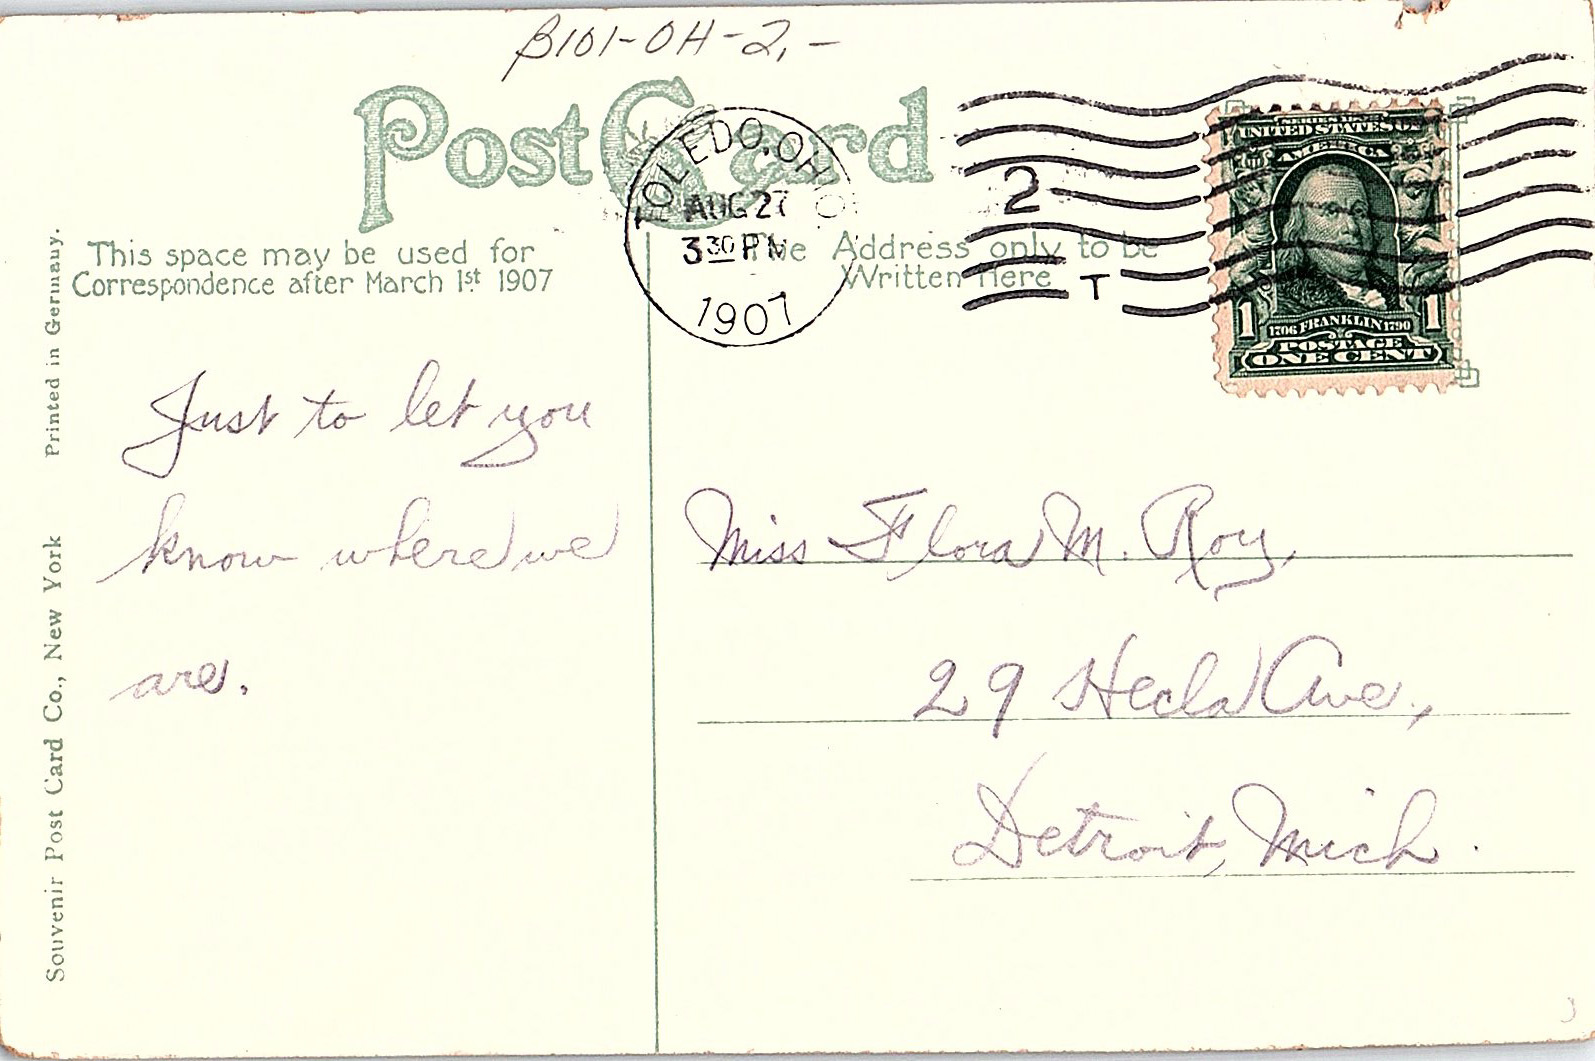 B101-OH-2,-
Post Card
TOLEDO, OHIO
AUG 27
3 30 PM
1907
2
T
UNITED STATES OF
AMERICA
1 1706 FRANKLIN 1790 1
POSTAGE
ONE CENT
This space may be used for
Correspondence after March 1st 1907
The Address only to be
Written Here
Just to let you
know where we
are.
Miss Flora M. Roy,
29 Hecla Ave.,
Detroit, Mich.
Souvenir Post Card Co., New York Printed in Germany.